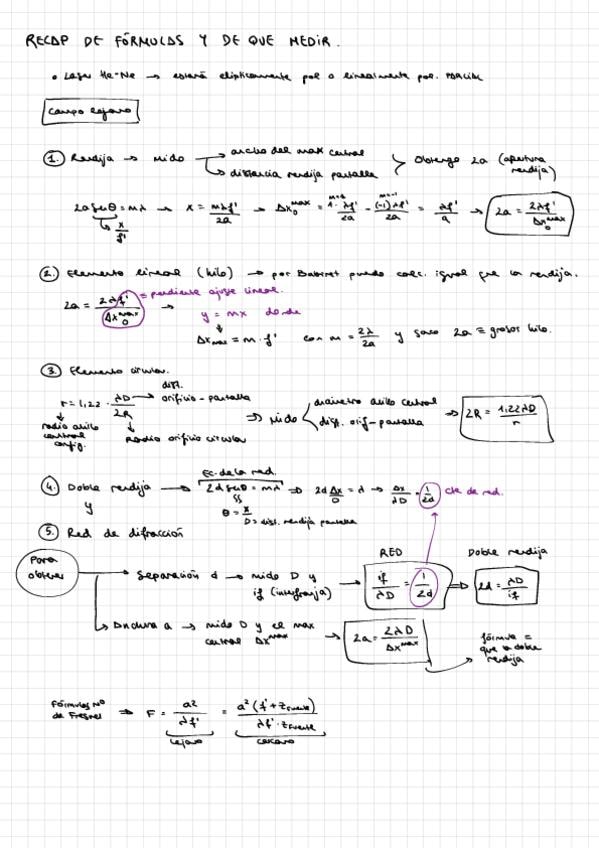 RECAP DE FÓRMULAS Y DE QUE MEDIR.
• Laser He-Ne → estará elípticamente pol o linealmente pol. PARCIAL
Campo lejano
1. Rendija → Mido → ancho del max central
→ distancia rendija pantalla
> Obtengo 2a (apertura rendija)
2a senθ = mλ → x = mλf'/2a → Δx₀^max = 1·λf'/2a - (-1)λf'/2a = λf'/a → 2a = 2λf'/Δx₀^max
m=1 m=-1
x/f'
2. Elemento lineal (hilo) → por Babinet puedo calc. igual que la rendija.
2a = 2λf'/Δx₀^max = pendiente ajuste lineal.
→ y = mx donde
Δx_max = m·f' con m = 2λ/2a y saco 2a ≡ grosor hilo.
3. Elemento circular.
r = 1,22·λD/2R → dist. orificio-pantalla
radio anillo central config.
Radio orificio circular
⇒ Mido < diámetro anillo central
dist. orif-pantalla
→ 2R = 1,22λD/r
4. Doble rendija → Ec. de la red.
2d senθ = mλ ⇒ 2d Δx/D = λ → Δx/λD = 1/2d cte de red.
θ = x/D
D = dist. rendija pantalla
y
5. Red de difracción
Para obtener
→ Separación d → mido D y if (interfranja) →
RED
if/λD = 1/2d
⇒
Doble rendija
2d = λD/if
↳ Anchura a → mido D y el max central Δx^max → 2a = 2λD/Δx^max
→ fórmula = que la doble rendija
Fórmulas Nº de Fresnel ⇒ F = a²/λf' = a²(f'+z_fuente)/λf'·z_fuente
lejano cercano